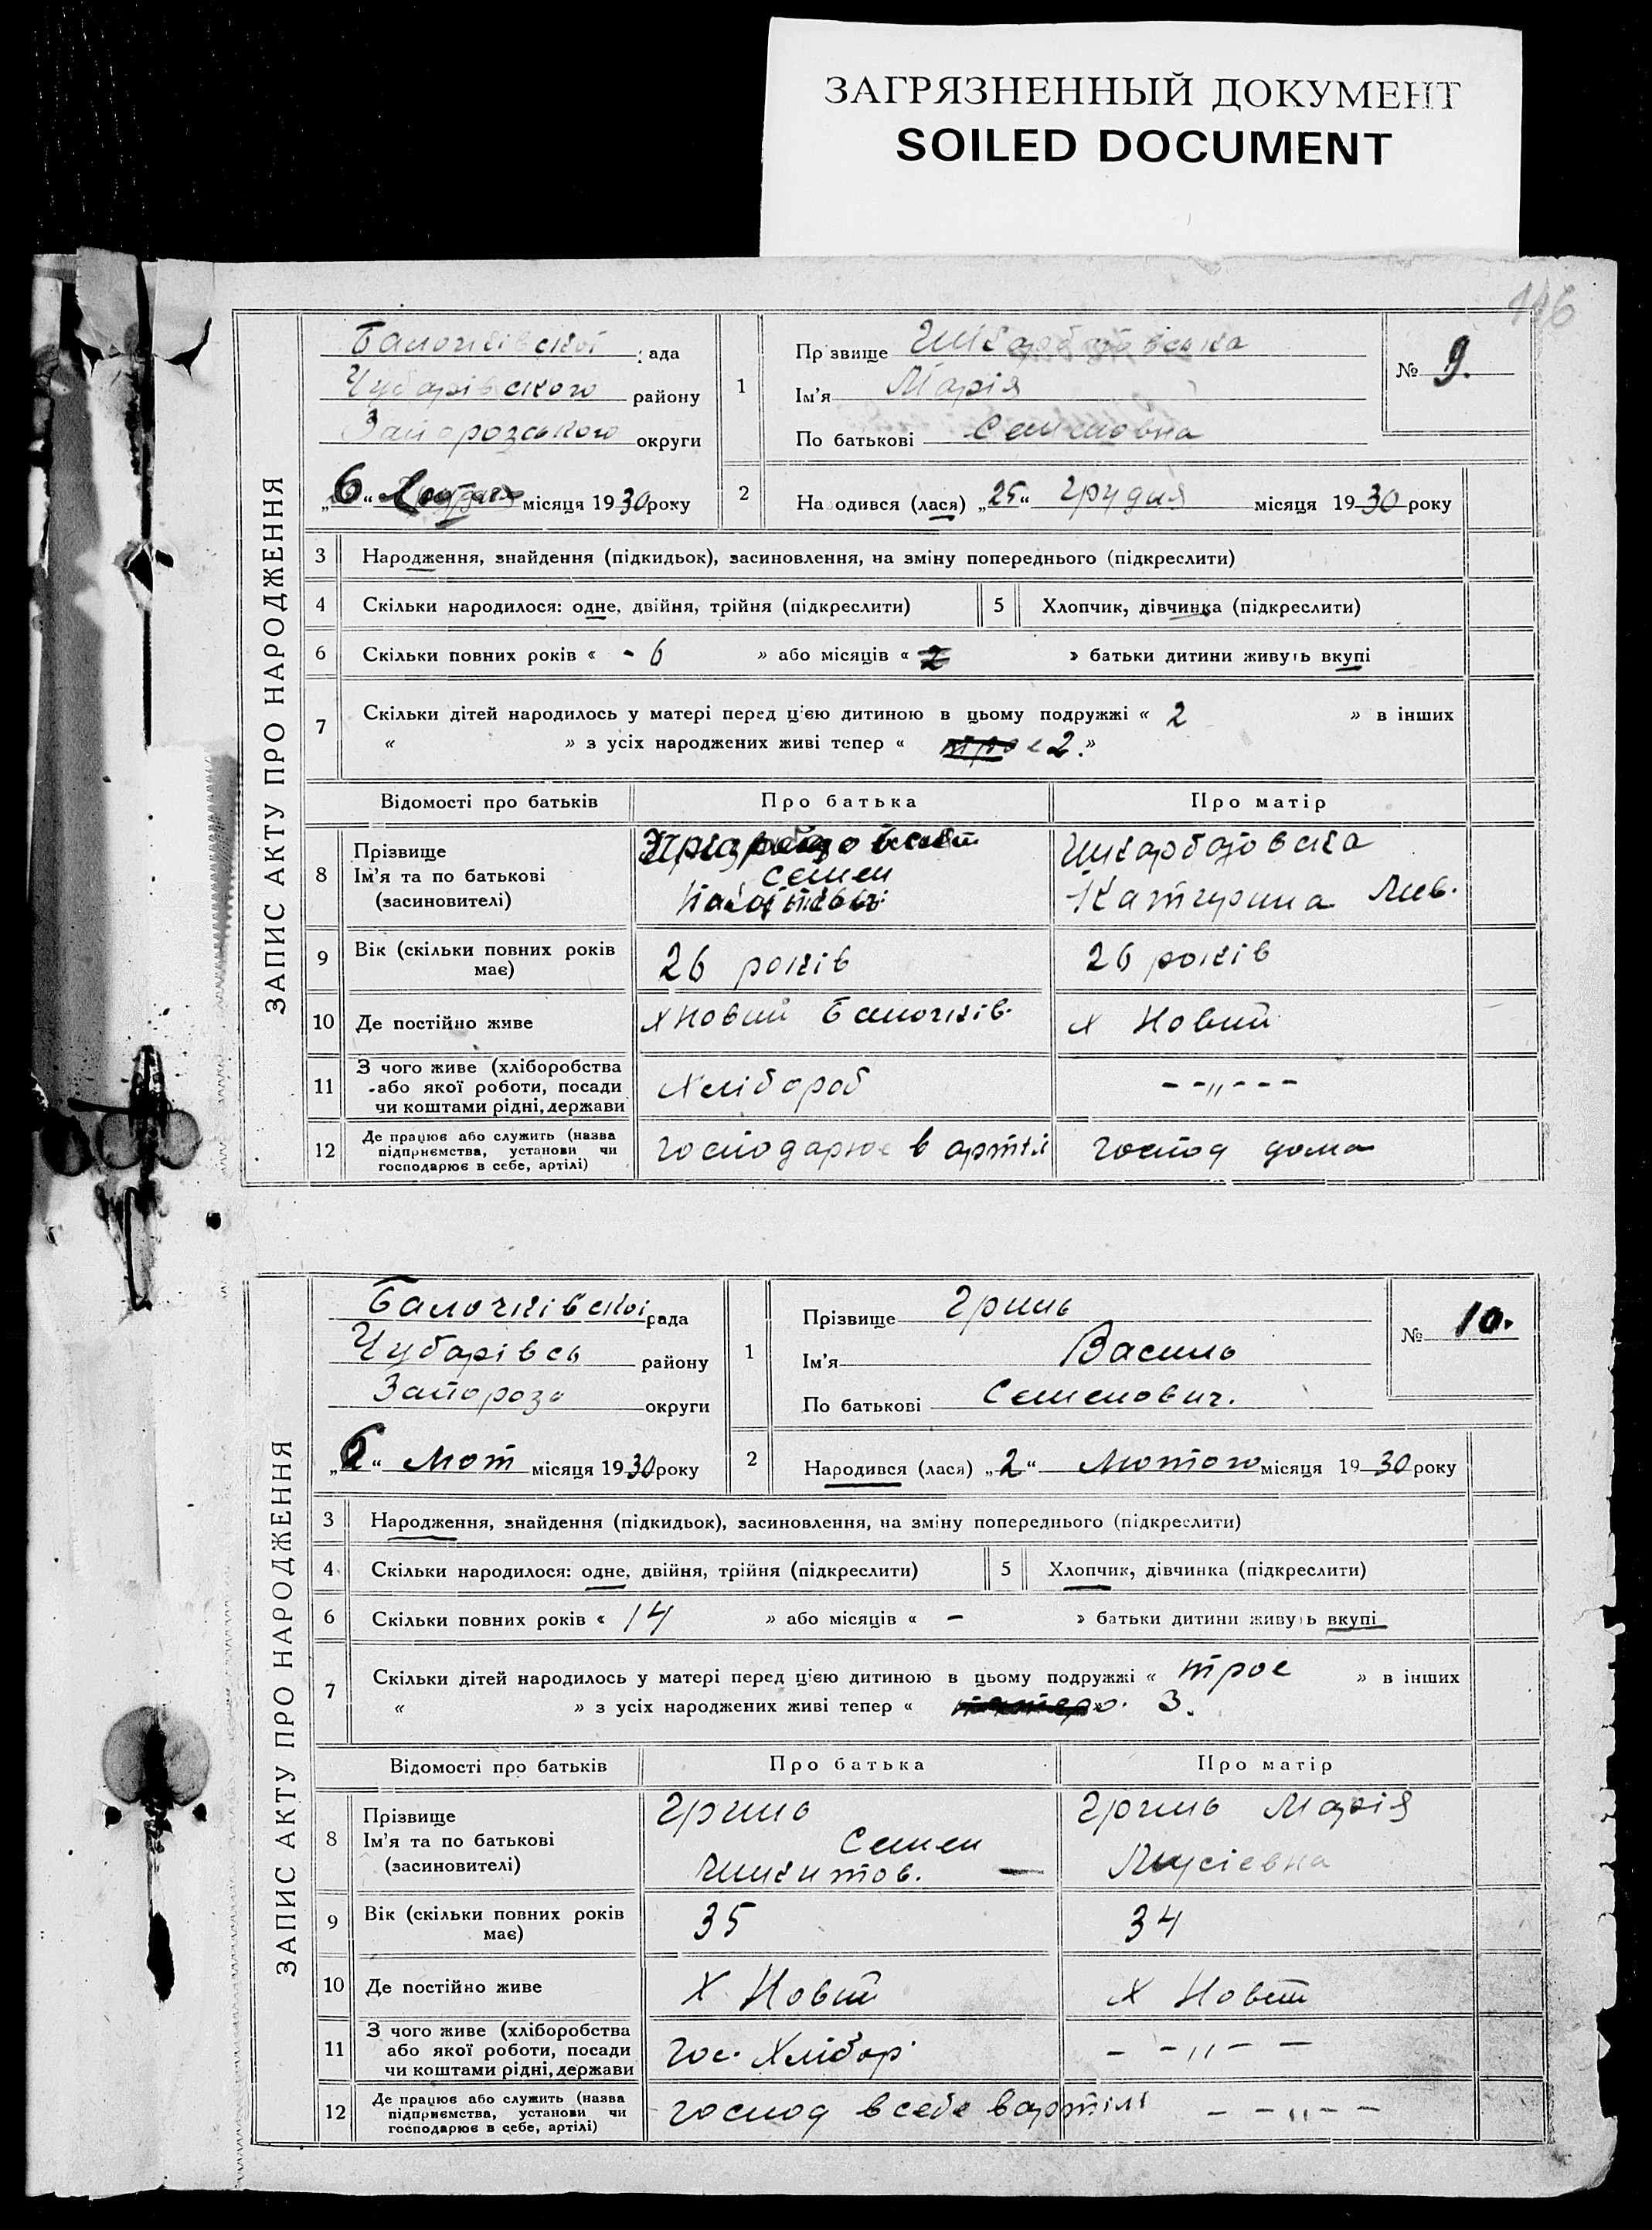 ЗАГРЯЗНЕННЫЙ ДОКУМЕНТ
SOILED DOCUMENT
116
ЗАПИС АКТУ ПРО НАРОДЖЕННЯ
Балочківської рада
Чубарівского району
Запорозського округи
„6“ місяця 1930 року
1
Прізвище
Ім'я Марія
По батькові Семеновна
№ 9.
2
Народився (лася) „25“ грудня місяця 1930 року
3 Народження, знайдення (підкидьок), засиновлення, на зміну попереднього (підкреслити)
4 Скільки народилося: одне, двійня, трійня (підкреслити)
5 Хлопчик, дівчинка (підкреслити)
6 Скільки повних років « - 6 » або місяців « 2 » батьки дитини живуть вкупі
7 Скільки дітей народилось у матері перед цією дитиною в цьому подружжі « 2 » в інших
« » з усіх народжених живі тепер « 2. »
Відомості про батьків Про батька Про матір
8 Прізвище
Ім'я та по батькові
(засиновителі)
Семен
Шкарбатовска
Катерина
9 Вік (скільки повних років має) 26 років 26 років
10 Де постійно живе х Новий Балочків. х Новий
11 З чого живе (хліборобства або якої роботи, посади чи коштами рідні, держави Хлібороб – – „ – – –
12 Де працює або служить (назва підприємства, установи чи господарює в себе, артілі) господарює в артілі господ дома
ЗАПИС АКТУ ПРО НАРОДЖЕННЯ
Балочківської рада
Чубарівсь району
Запорозь округи
Лют місяця 1930 року
1
Прізвище Гриль
Ім'я Василь
По батькові Семенович.
№ 10.
2
Народився (лася) „2“ Лютого місяця 1930 року
3 Народження, знайдення (підкидьок), засиновлення, на зміну попереднього (підкреслити)
4 Скільки народилося: одне, двійня, трійня (підкреслити)
5 Хлопчик, дівчинка (підкреслити)
6 Скільки повних років « 14 » або місяців « – » батьки дитини живуть вкупі
7 Скільки дітей народилось у матері перед цією дитиною в цьому подружжі « троє » в інших
« » з усіх народжених живі тепер « 3.
Відомості про батьків Про батька Про матір
8 Прізвище
Ім'я та по батькові
(засиновителі)
Гриль
Семен
Гриль Марія
Мусіевна
9 Вік (скільки повних років має) 35 34
10 Де постійно живе Х Новий х Новий
11 З чого живе (хліборобства або якої роботи, посади чи коштами рідні, держави гос. Хлібор – – „ – –
12 Де працює або служить (назва підприємства, установи чи господарює в себе, артілі) господ в себе в артілі – – „ – –